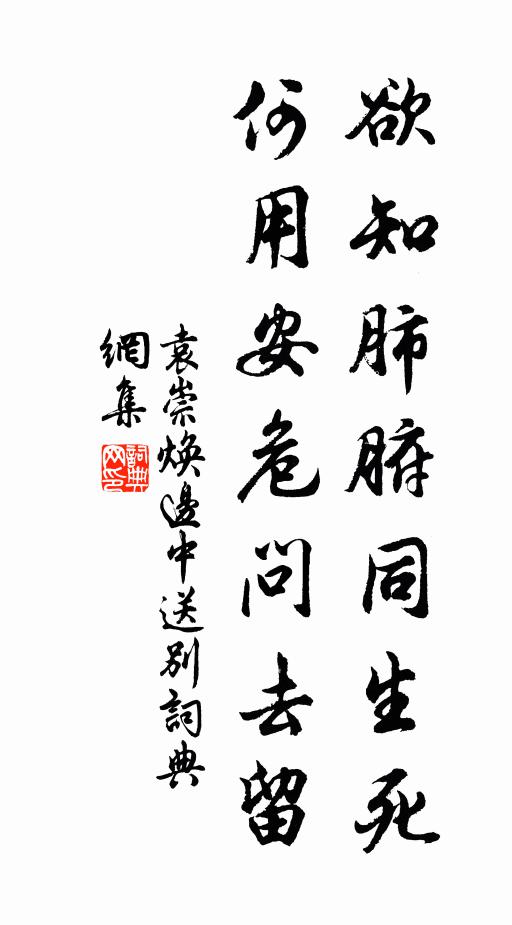 欲知肺腑同生死
何用安危問去留
袁崇煥邊中送別詞典
網集
詞典
网印